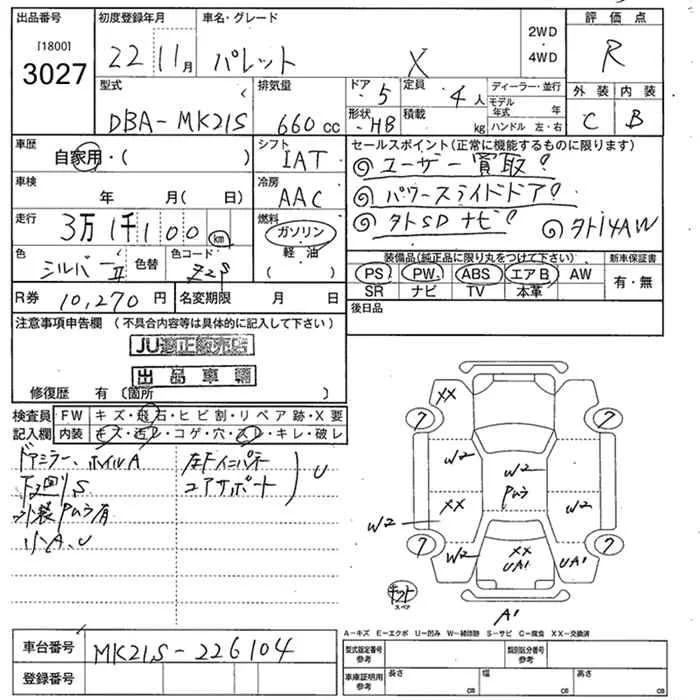 出品番号
[1800]
3027
初度登録年月
22 11月
車名・グレード
パレット X
2WD
・
4WD
評価点
R
型式
DBA-MK21S
排気量
660 cc
ドア 5
定員 4人
形状 HB
積載 kg
ディーラー・並行
モデル年式 年
ハンドル 左・右
外装 内装
C B
車歴
自家用・( )
シフト
IAT
車検
年 月( 日)
冷房
AAC
走行
3万1千100 km
燃料
ガソリン
軽・油
( )
色
シルバーII
色替
色コード
Z2S
R券 10,270 円
名変期限 月 日
セールスポイント(正常に機能するものに限ります)
◎ユーザー買取!
◎パワースライドドア!
◎外SDナビ! ◎外14AW
装備品(純正品に限り丸をつけて下さい)
PS PW ABS エアB AW
SR ナビ TV 本革
新車保証書
有・無
後日品
注意事項申告欄 (不具合内容等は具体的に記入して下さい)
JU適正販売店
出品車輛
修復歴 有(箇所 )
検査員記入欄
FW キズ・飛石・ヒビ割・リペア跡・X要
内装 キズ・汚レ・コゲ・穴・スレ・キレ・破レ
ドアミラー、ホイルA
下廻りS
外装Pムラ有
小A、U
左Fインパネ
コアサポート
U
XX
ワ
ワ
W2
W2
Pムラ
XX
W2
W2
W2
XX
UA1
UA1
ワ
ワ
キット
スペア
A1
A-キズ E-エクボ U-凹み W-補修跡 S-サビ C-腐食 XX-交換済
車台番号 MK21S-226104
登録番号
型式指定番号
参考
類別区分番号
参考
車庫証明用
参考
長さ cm
幅 cm
高さ cm